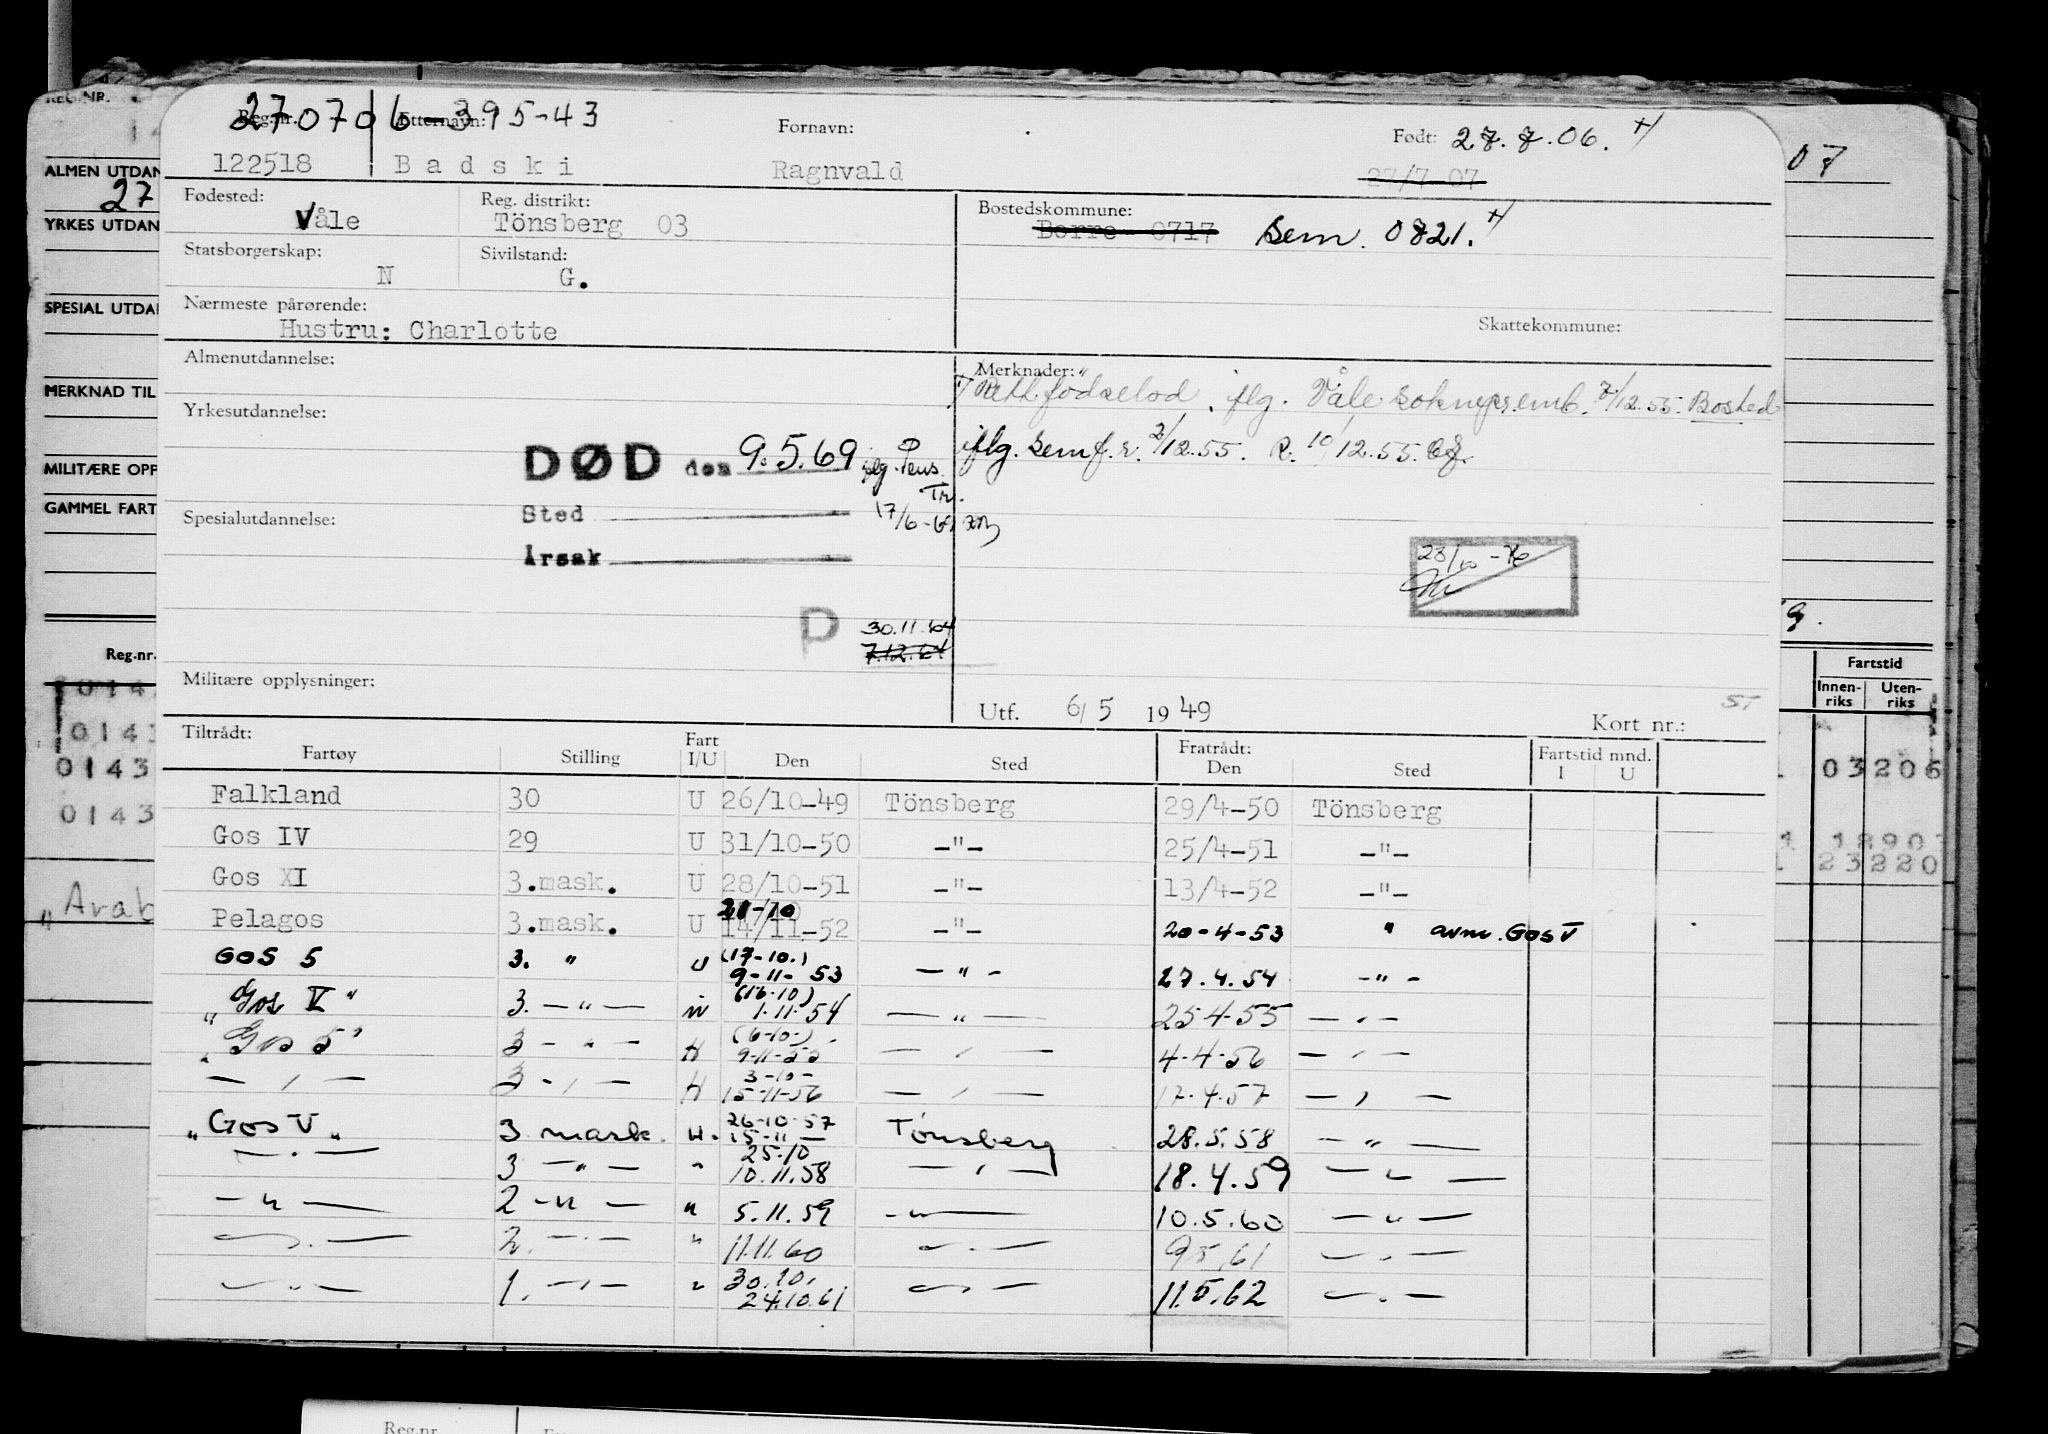 REG.NR.
270706-395-43
Reg.nr. Etternavn: Fornavn: Født: 27.7.06. x/
122518 Badski Ragnvald 27/7-07
07
ALMEN UTDAN
27
Fødested: Reg. distrikt: Bostedskommune:
Våle Tönsberg 03 Borre 0717 Sem. 0821. x/
YRKES UTDAN
Statsborgerskap: Sivilstand:
N G.
SPESIAL UTDA
Nærmeste pårørende: Skattekommune:
Hustru: Charlotte
Almenutdannelse: Merknader:
MERKNAD TIL
Rett födselsd. iflg. Våle soknepremb. 7/12.55. Bosted
Yrkesutdannelse:
iflg. Sem f.r. 2/12.55. R. 10/12.55.
DØD den 9.5.69 iflg. Pens. Tr.
MILITÆRE OPP
GAMMEL FART
Sted 17/6-69
Spesialutdannelse:
Årsak
28/10-76
P 30.11.64
7.12.64
9.
Militære opplysninger:
Utf. 6/5 1949 Kort nr.:
ST
Reg.nr.
Fartstid
Innen-riks Uten-riks
Tiltrådt: Fart Fratrådt: Fartstid mnd.
Fartøy Stilling I/U Den Sted Den Sted I U
0143
0143
0143
03206
23220
Falkland 30 U 26/10-49 Tönsberg 29/4-50 Tönsberg
Gos IV 29 U 31/10-50 -"- 25/4-51 -"-
Gos XI 3.mask. U 28/10-51 -"- 13/4-52 -"-
21-10
Pelagos 3.mask. U 14/11-52 -"- 20-4-53 " avm. GOS V
(17-10.)
GOS 5 3. " U 9-11-53 -"- 27.4.54 -"-
(16-10)
"Gos V" 3. -"- " 1.11.54 -"- 25.4.55 -"-
(6-10-)
"Gos 5" 3 -"- H 9-11-55 -"- 4.4.56 -"-
3-10-
-"- 3 -"- H 15-11-56 -"- 17.4.57 -"-
26-10-57
"Gos V" 3 mask. H. 15-11- Tönsberg 28.5.58 -"-
25.10
-"- 3 -"- " 10.11.58 -"- 18.4.59 -"-
-"- 2 -"- " 5.11.59 -"- 10.5.60 -"-
-"- 2. -"- " 11.11.60 -"- 9.5.61 -"-
30.10.
-"- 1. -"- " 24.10.61 -"- 11.5.62 -"-
"Arab
Reg.nr.